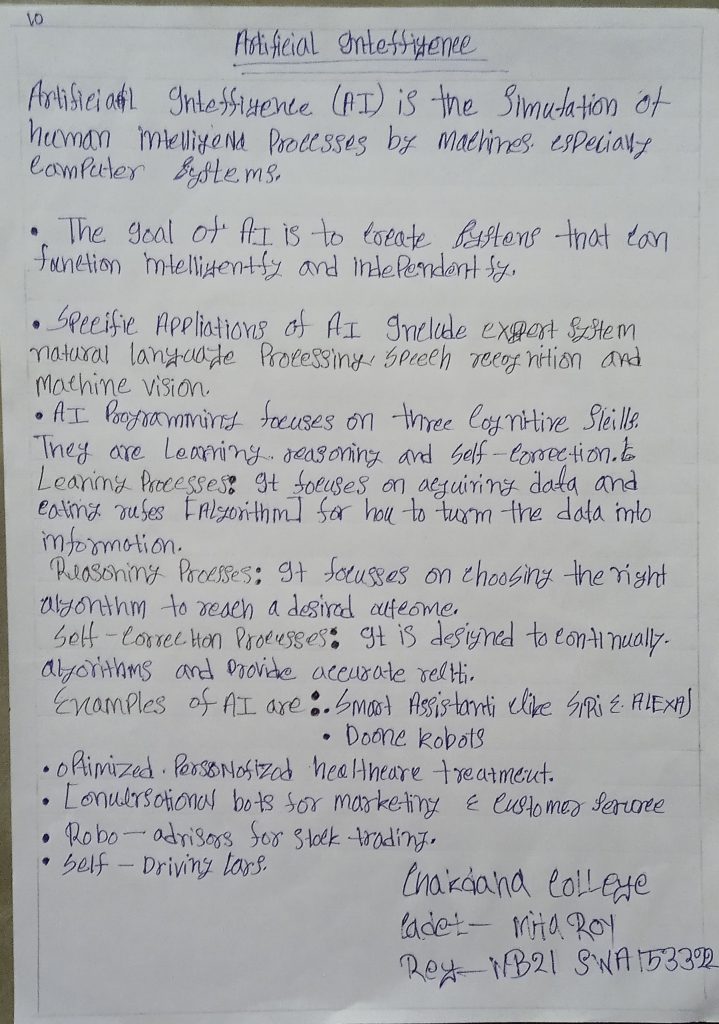 10
Artificial Intelligence
Artificial Intelligence (AI) is the Simulation of
human intelligend Processes by Machines. especially
Computer Systems.
• The goal of AI is to Create Systens that can
function intelligently and independently.
• Specific Appliations of AI Include expert System
natural language Processing, Speech recognition and
Machine vision.
• AI Programming focuses on three Cognitive Skills.
They are Learning. reasoning and Self-Correction.
Learing Processes: It focuses on acquiring data and
eating rules [Algorithm] for how to turm the data into
information.
Reasoning Processes: It focusses on choosing the right
algorithm to reach a desired outcome.
Self-Correction Processes: It is designed to continually.
algorithms and provide accurate
Examples of AI are :. Smart Assistanti like SIRi & ALEXA)
• Doone Robots
• optimized. Personalized healthcare treatment.
• Conversational bots for marketing & Customer Service
• Robo-advisors for stock trading.
• Self-Driving Cars.
Chakdaha College
Cadet- Mita Roy
Reg- WB21 SWA153392